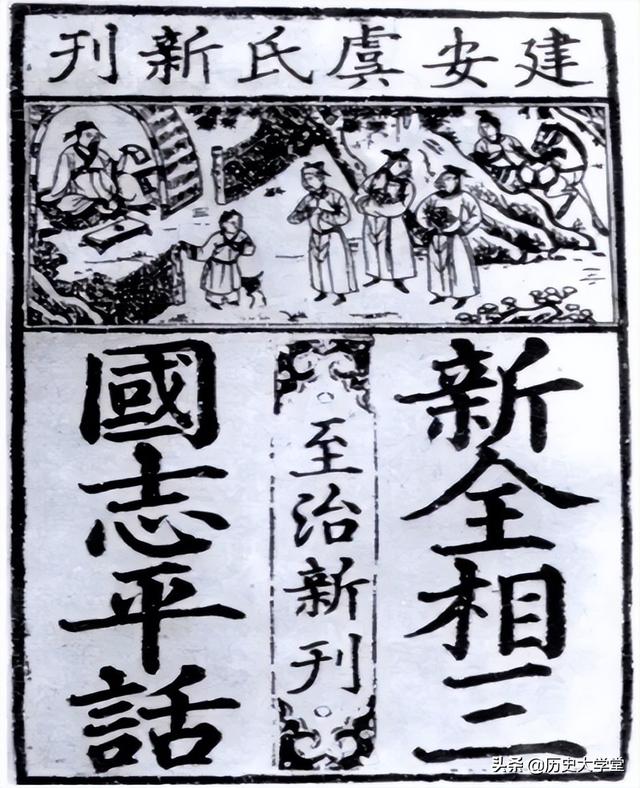 建安虞氏新刊
新全相三
至治新刊
國志平話
头条 @历史大学堂